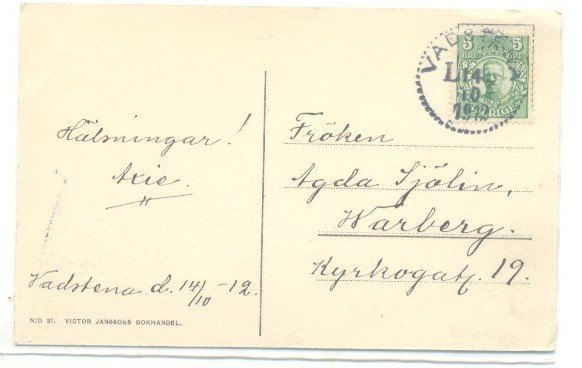 Hälsningar!
Axie.
Vadstena d. 14/10 -12.
N:O 31. VICTOR JANSSONS BOKHANDEL.
VADSTE
14
10
1912
5 5
Fröken
Agda Sjölin,
Warberg.
Kyrkogat. 19.